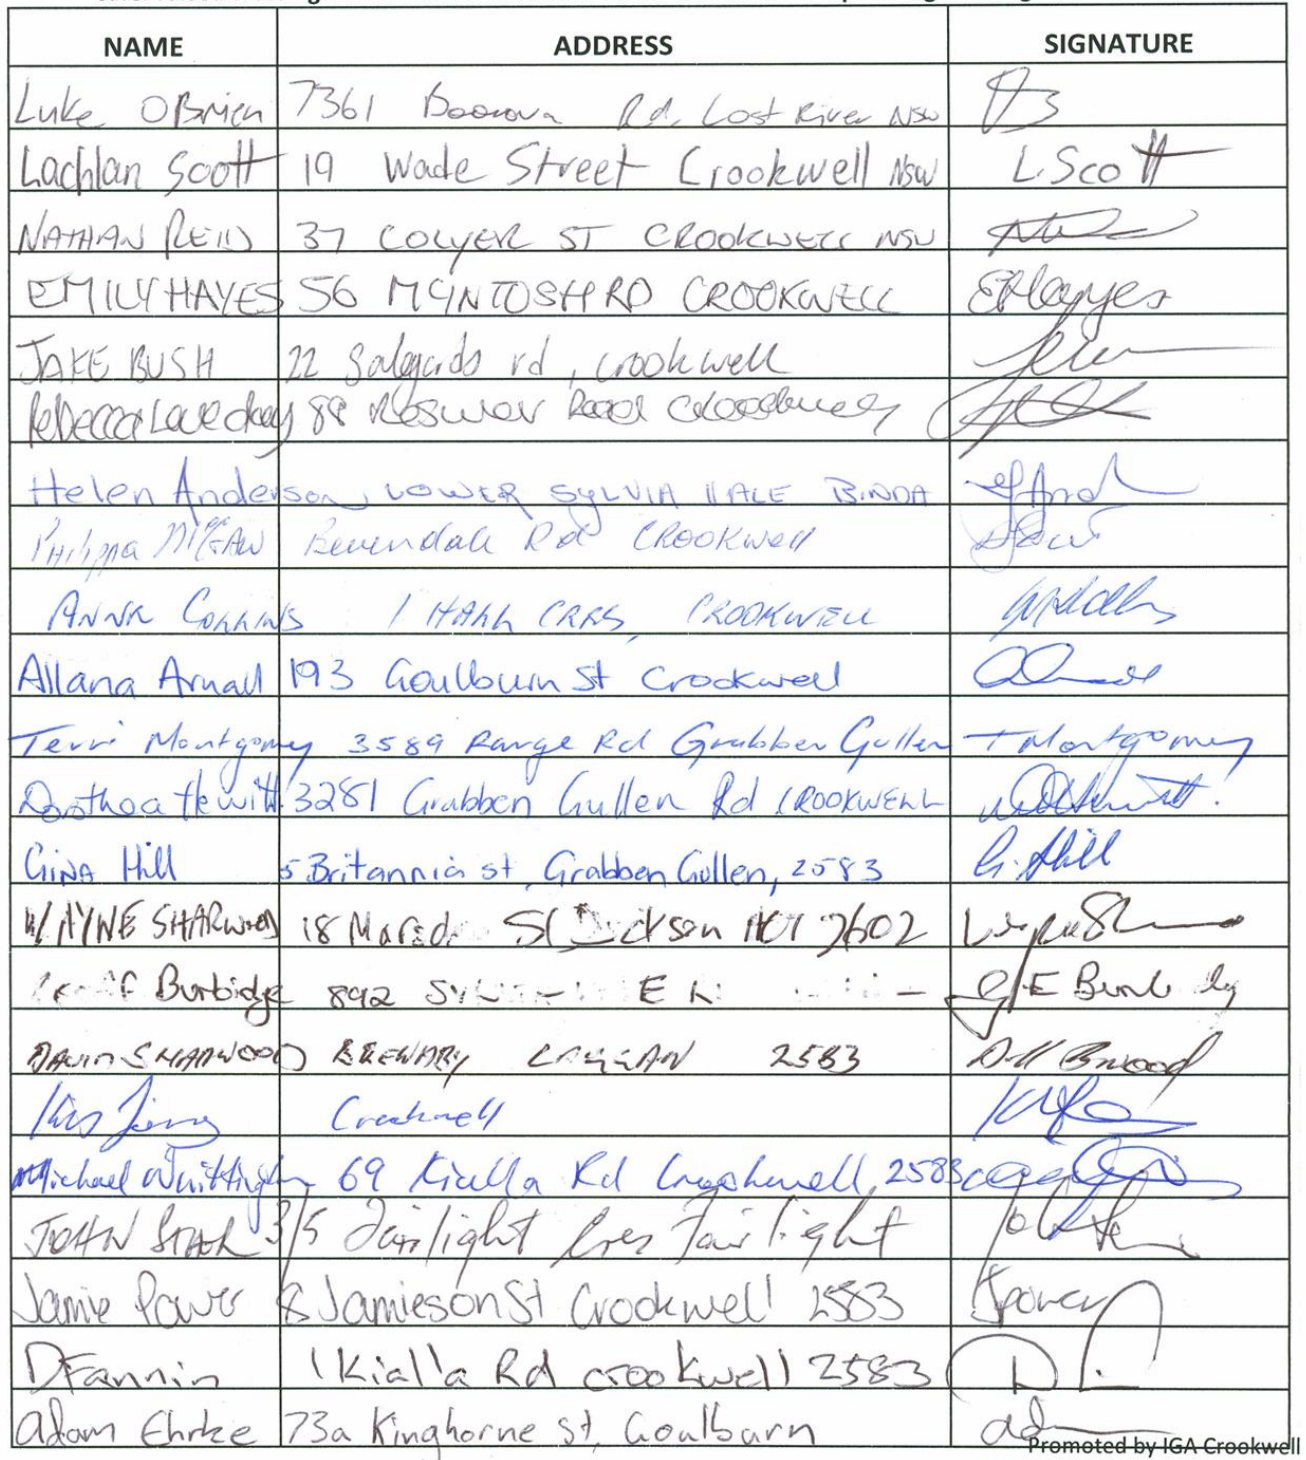 NAME ADDRESS SIGNATURE
Luke OBrien 7361 Boorova Rd, Lost River NSW
Lachlan Scott 19 Wade Street Crookwell NSW L.Scott
NATHAN REID 37 COLYER ST CROOKWELL NSW
EMILY HAYES 56 MCINTOSH RD CROOKWELL EHayes
JAKE BUSH 22 rd, Crookwell
Rebecca 88 Road
Helen Anderson, LOWER SYLVIA VALE BINDA
Philippa McGAW Bevendale Rd CROOKWell
ANNE COLLINS 1 HALL CRES, CROOKWELL
Allana Arnall 193 Goulburn St Crookwell
Terri Montgomery 3589 Range Rd Grabben Gullen T Montgomery
Dorothea Hewitt 3281 Grabben Gullen Rd CROOKWELL
GINA Hill 5 Britannia st, Grabben Gullen, 2583 G. Hill
WAYNE SHARWOOD 18 St Dickson ACT 2602
Burbidge 892
DAVID SHARWOOD BREWARY LAGGAN 2583
Crookwell
Michael Whittingham 69 Kialla Rd Crookwell, 2583
JOHN 3/5 Fairlight Cres Fairlight
Jamie Power 8 Jamieson St Crookwell 2583 JPower
D Fannin 1 Kialla Rd crookwell 2583
adam Ehrke 73a Kinghorne st, Goulburn
Promoted by IGA Crookwell